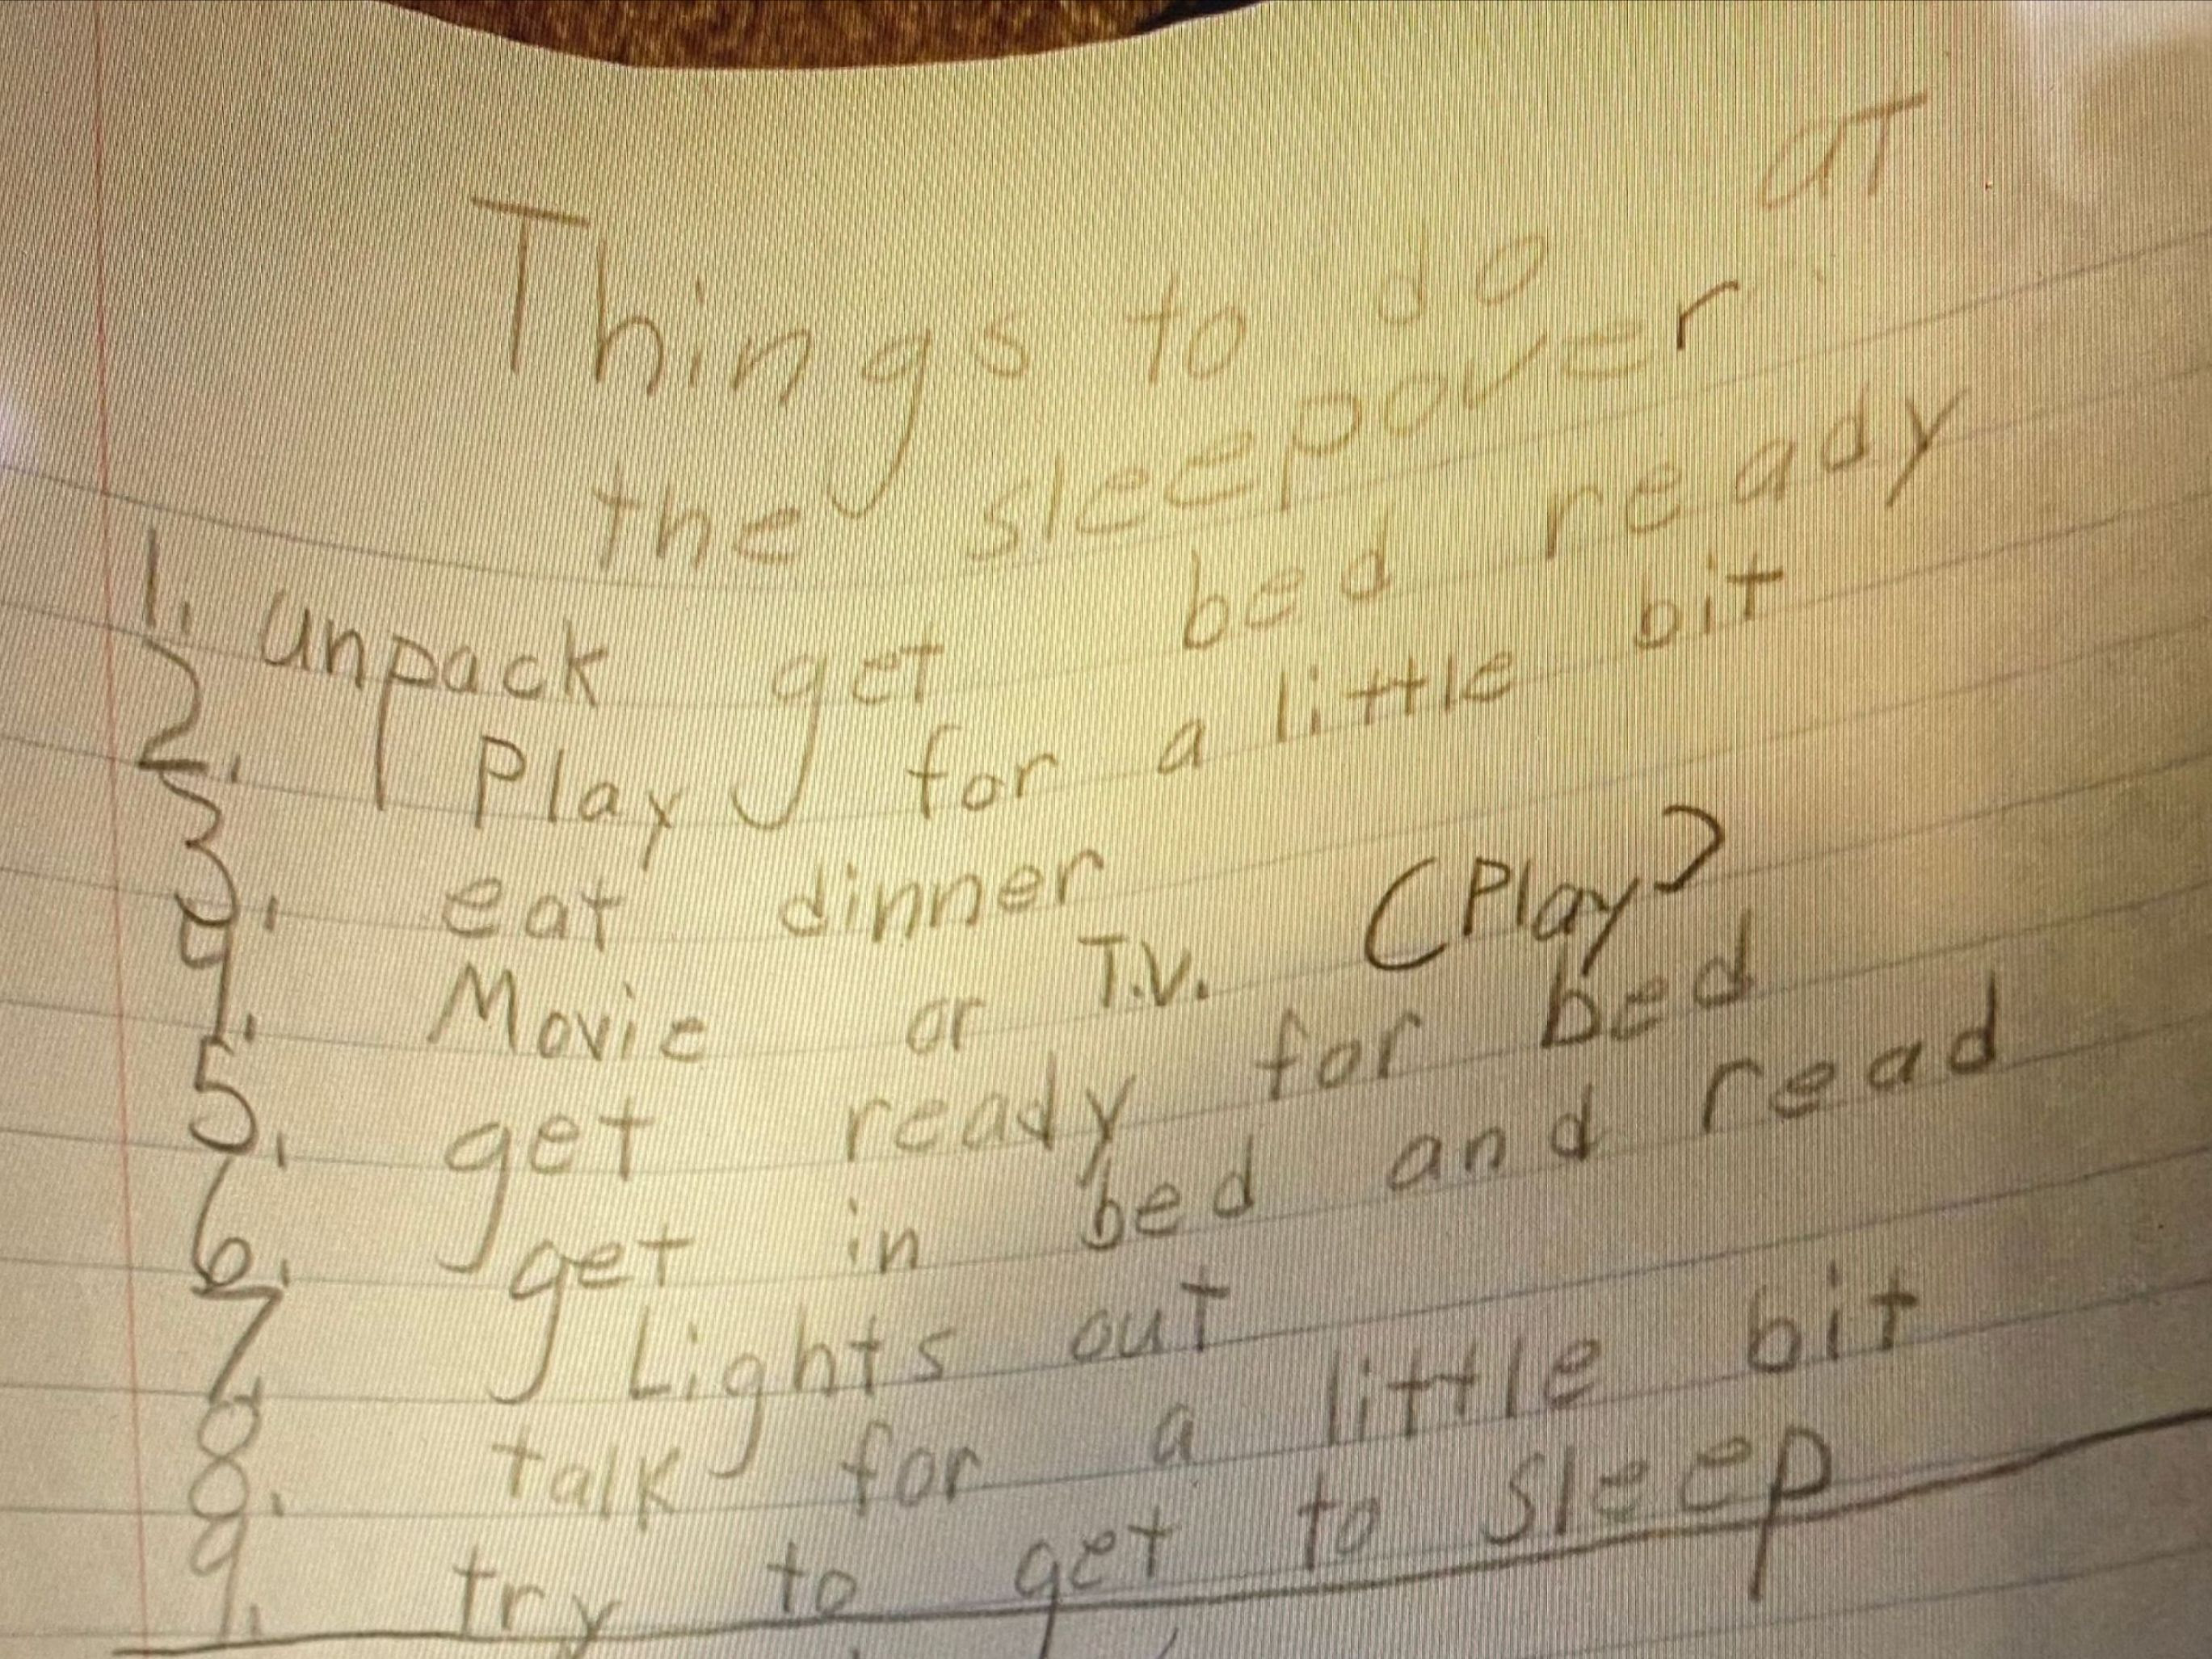 Things to do at
the sleepover
1. unpack get bed ready
2. Play for a little bit
3. eat dinner
4. Movie or T.V. (Play)
5. get ready for bed
6. get in bed and read
7. Lights out
8. talk for a little bit
9. try to get to sleep